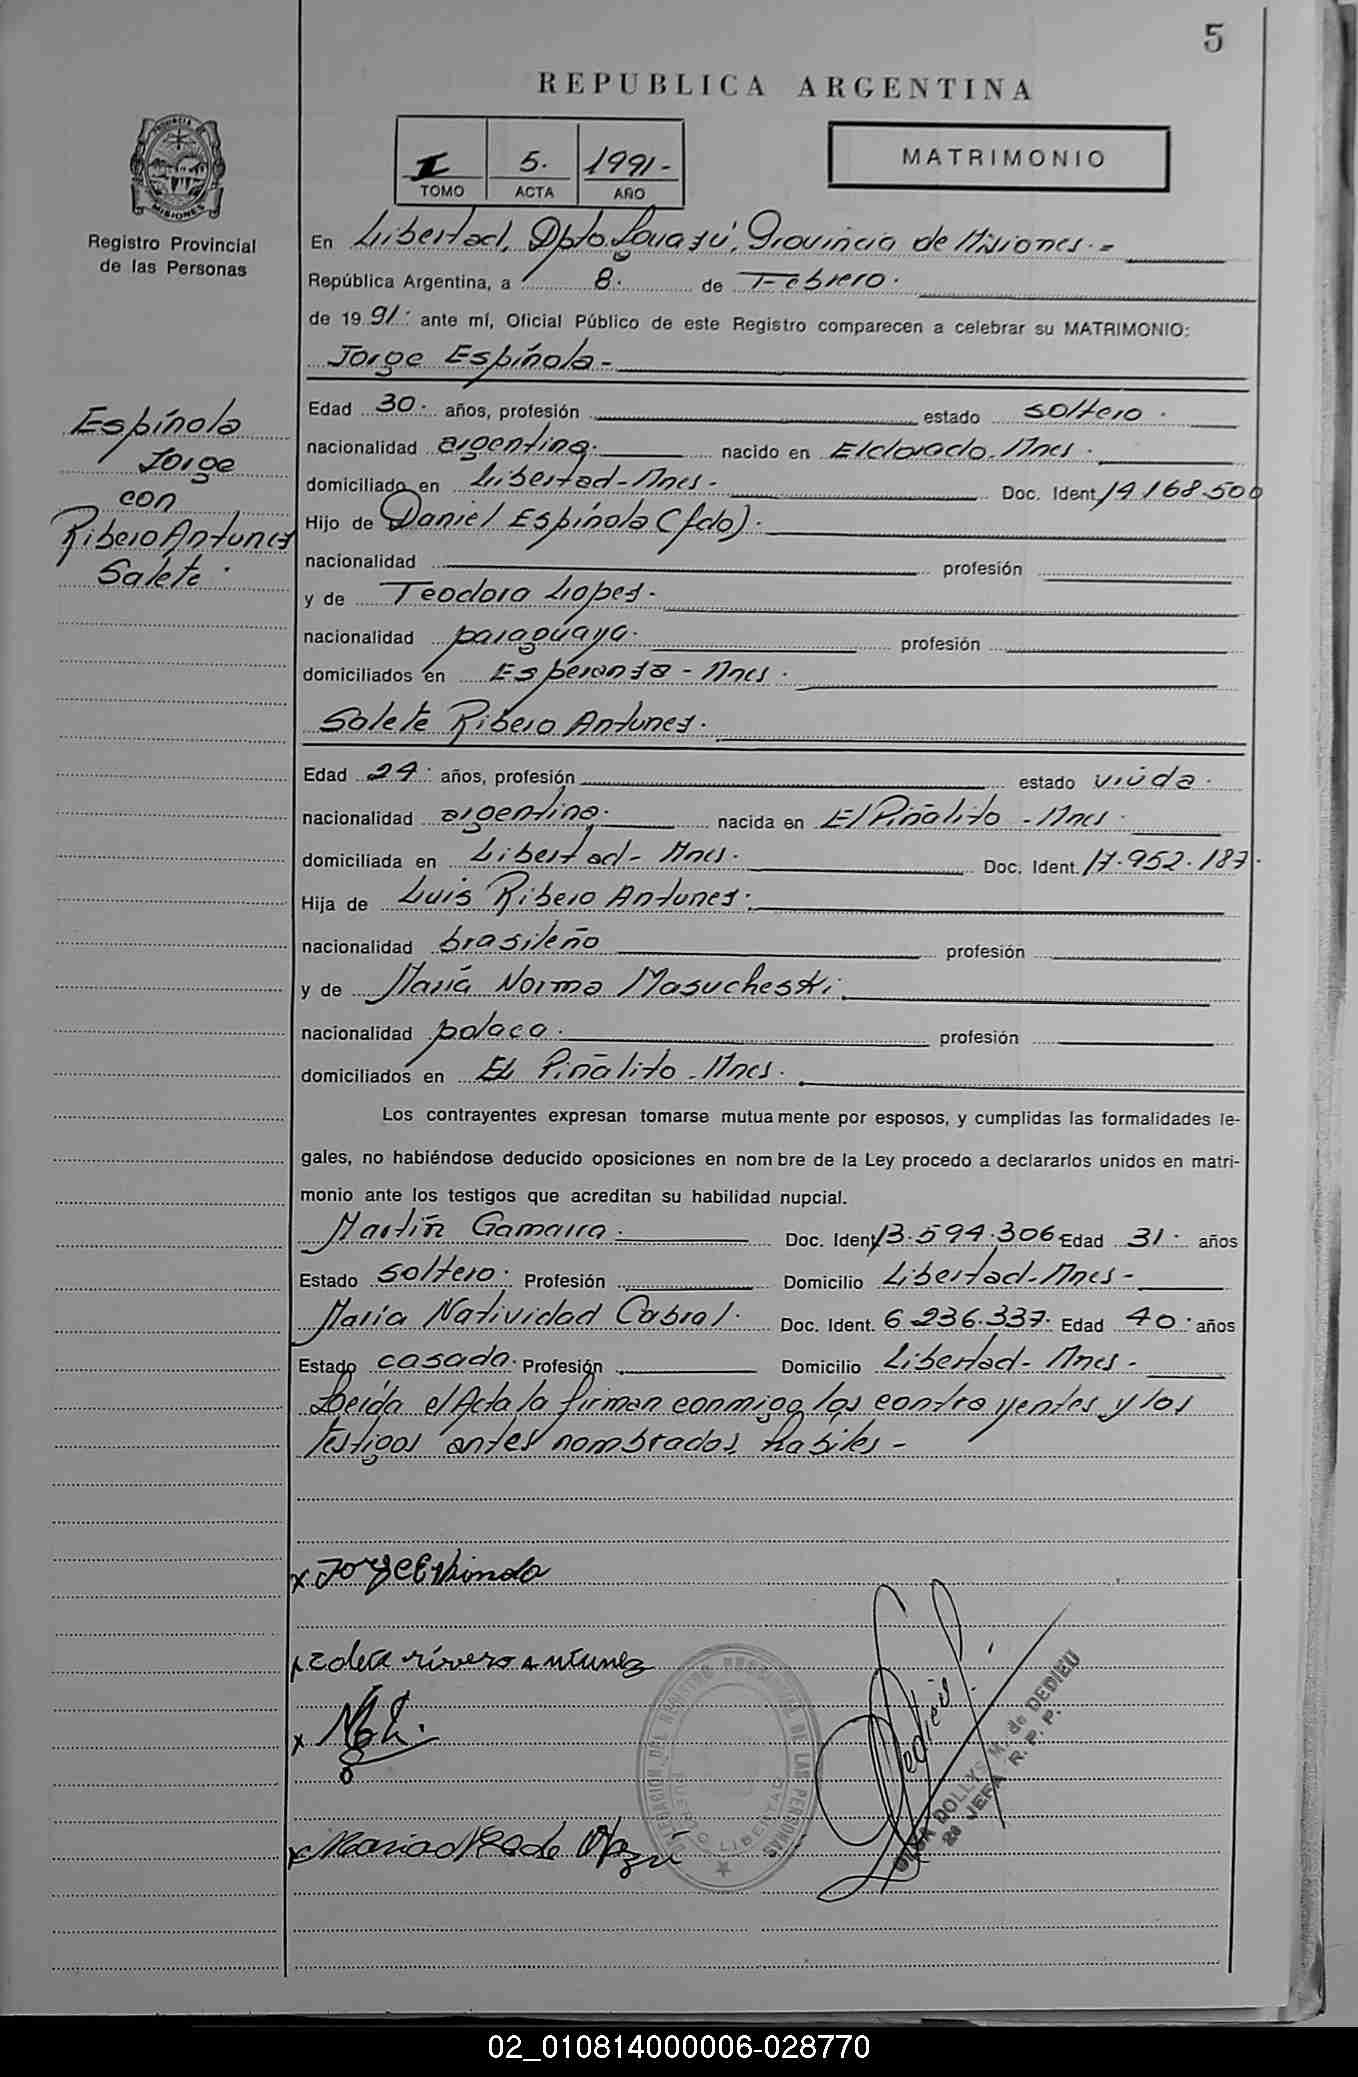 5
REPUBLICA ARGENTINA
PROVINCIA DE
MISIONES
Registro Provincial
de las Personas
I 5. 1991-
TOMO ACTA AÑO
MATRIMONIO
En Libertad, Dpto. Iguazú, Provincia de Misiones.=
República Argentina, a 8. de Febrero.
de 1991. ante mí, Oficial Público de este Registro comparecen a celebrar su MATRIMONIO:
Jorge Espínola-
Espínola
Jorge
con
Ribero Antunes
Salete.
Edad 30. años, profesión estado soltero.
nacionalidad argentina. nacido en Eldorado. Mnes.
domiciliado en Libertad-Mnes- Doc. Ident 14.168.500
Hijo de Daniel Espínola (fdo).
nacionalidad profesión
y de Teodora Lopes.
nacionalidad paraguaya. profesión
domiciliados en Esperanza-Mnes.
Salete Ribero Antunes.
Edad 24. años, profesión estado viúda.
nacionalidad argentina. nacida en El Piñalito-Mnes.
domiciliada en Libertad-Mnes. Doc. Ident. 17.952.187.
Hija de Luis Ribero Antunes.
nacionalidad brasileño profesión
y de María Norma Masucheski.
nacionalidad polaca. profesión
domiciliados en El Piñalito-Mnes.
Los contrayentes expresan tomarse mutuamente por esposos, y cumplidas las formalidades le-
gales, no habiéndose deducido oposiciones en nombre de la Ley procedo a declararlos unidos en matri-
monio ante los testigos que acreditan su habilidad nupcial.
Martín Gamarra. Doc. Ident 13.594.306 Edad 31. años
Estado soltero. Profesión Domicilio Libertad-Mnes-
María Natividad Cabral. Doc. Ident. 6.236.337. Edad 40. años
Estado casada. Profesión Domicilio Libertad-Mnes-
Leída el Acta la firman conmigo los contrayentes y los
testigos antes nombrados, habiles-
x Jorge Espinola
x Zaleta rivero antunez
x
x Maria
DELEGACION DEL REGISTRO PROVINCIAL DE LAS PERSONAS
PUEBLO LIBERTAD
Dedieu
OLGA DOLLYS M. de DEDIEU
2a JEFA R. P. P.
02_010814000006-028770